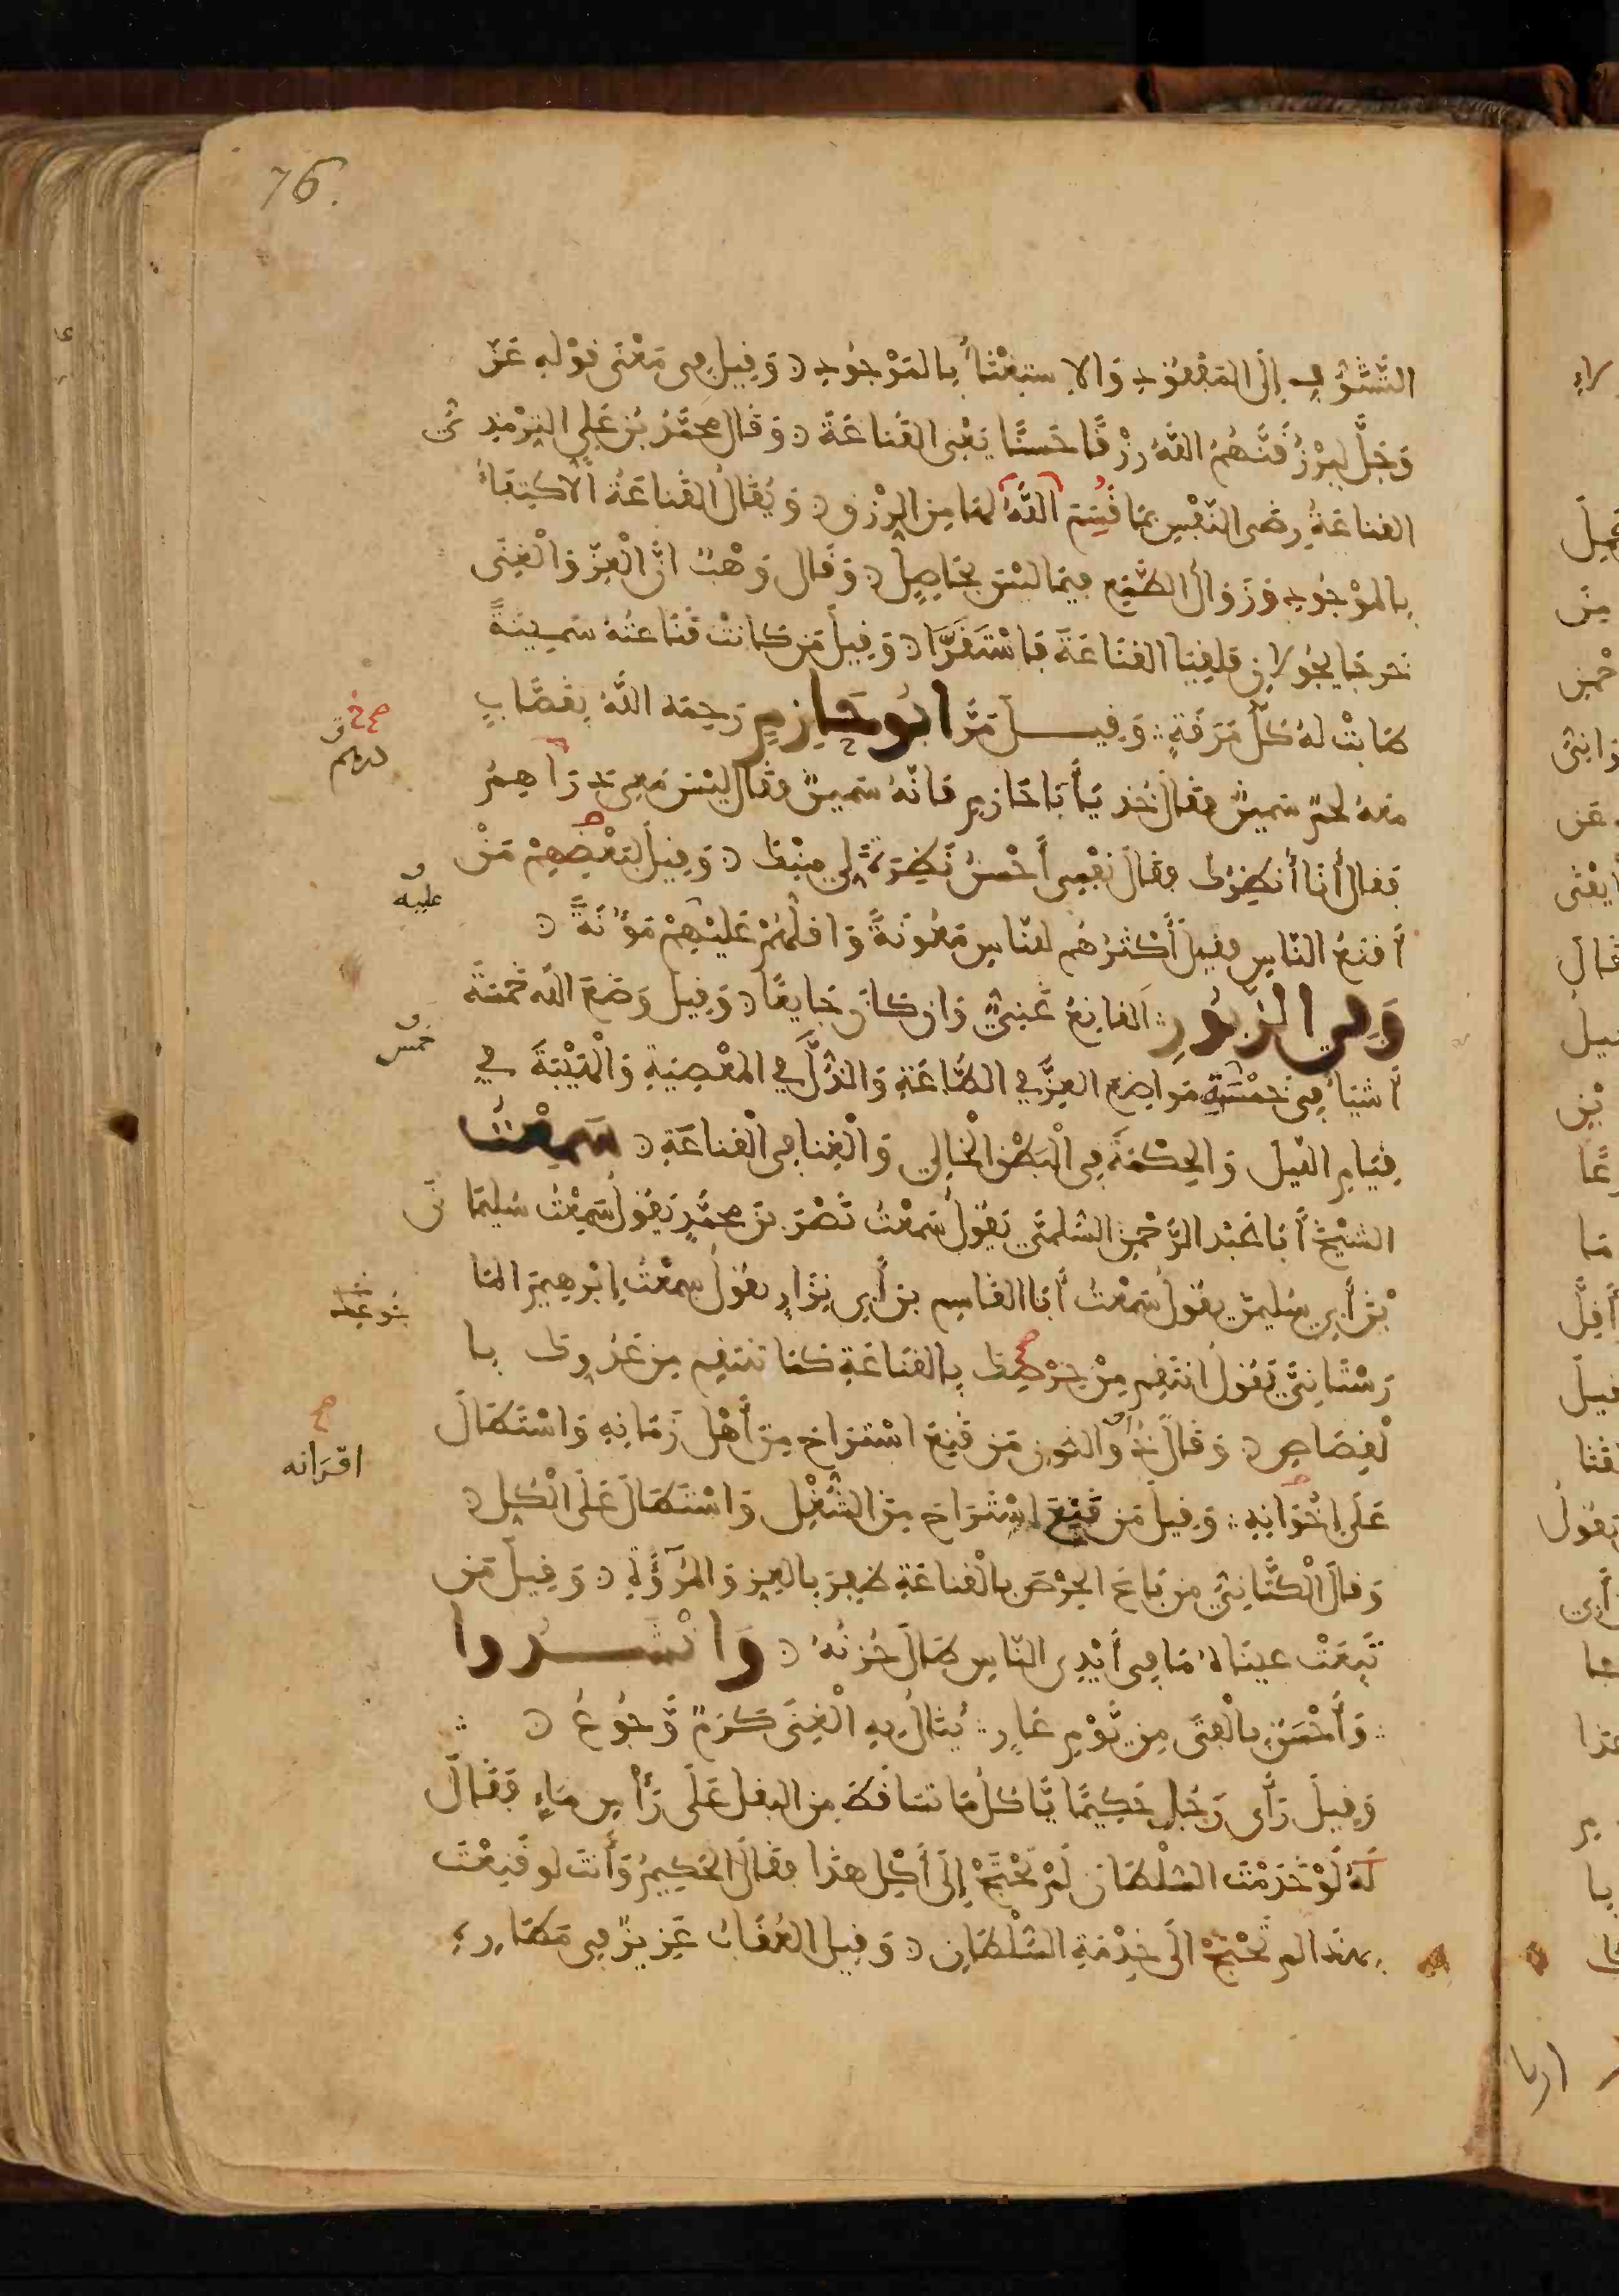 76.
التَّشَوُّفِ إلَى المَفْقُودِ وَالاِسْتِغْنَاءُ بِالمَوْجُودِ وَقِيلَ فِى مَعْنَى قَوْلِهِ عَزَّ
وَجَلَّ لَيَرْزُقَنَّهُمُ اللَّهُ رِزْقًا حَسَنًا يَعْنِى القَنَاعَةَ وَقَالَ مُحَمَّدُ بْنُ عَلِى التِّرْمِذِىُّ
القَنَاعَةُ رِضَى النَّفْسِ بِمَا قُسِمَ لهَا مِنَ الرِّزْقِ وَيُقَالُ القَنَاعَةُ الاكْتِفَاءُ
بِالمَوْجُودِ وَزَوَالُ الطَّمَعِ فِيمَا لَيْسَ بِحَاصِلٍ وَقَالَ وَهْبٌ انَّ الْعِزَّ وَالْغِنَى
خَرَجَا يَجُولانِ فَلَقِيَا القَنَاعَةَ فَاسْتَقَرَّا وَقِيلَ مَن كَانَتْ قَنَاعَتُهُ سَمِينَةً
طَابَتْ لهُ كُلُّ مَرَقَةٍ وَقِيلَ مَرَّ ابُو حَازِمٍ رَحِمَه اللَّهُ بِقَصَّابٍ
مَعَهُ لحْمٌ سَمِينٌ فقَالَ خُذ يَا أَبَا حَازِمٍ فَانَّهُ سَمِينٌ فقَالَ لَيْسَ مَعِى دَرَاهِمُ
درهم
فَقَالَ أَنَا أُنظِرُكَ فقَالَ نَفْسِى أَحْسَنُ نَظِرَةً لِى مِنْكَ وَقِيلَ لبَعْضِهِمْ مَنْ
أَقْنَعُ النَّاسِ فقِيلَ أَكْثَرُهُم للنَّاسِ مَعُونَةً وَاقَلُّهُمْ عَلَيْهِمْ مَؤُنَةً
عليه
وَفِى الزَّبُورِ القَانِعُ غَنِىٌّ وَانْ كَانَ جَايِعًا وَقِيلَ وَضَعَ اللَّه خَمْسَةَ
أَشْيَاءَ فِى خَمْسَةِ مَوَاضِعَ العِزَّ فِى الطَّاعَةِ وَالذُّلَّ فِى المَعْصِيَةِ وَالْهَيْبَةَ فِى
خمس
قِيَامِ اللّيل وَالحِكْمَةَ فِى الْبَطْنِ الْخَالِى وَالْغِنَا فِى الْقَنَاعَةِ سَمِعْتُ
الشيْخَ أَبَا عَبْد الرَّحْمنِ السُّلَمِىَّ يَقُولُ سَمِعْتُ نَصْرَ بْنَ مُحَمَّدٍ يَقُولُ سَمِعْتُ سُلَيمَانَ
بْنَ أَبِى سُلَيمن يقُولُ سَمِعْتُ أَبَا القَاسِمِ بْنَ أَبِى نِزَارٍ يقُولُ سَمِعْتُ إِبْرَهِيمَ المَا
رَسْتَانِىَّ يَقُولُ انْتَقِم مِنْ حِرْصِكَ بِالقَنَاعَةِ كَمَا تنتَقِم مِن عَدُوكَ با
لْقِصَاصِ وَقَالَ ذُو النُّونِ مَن قَنِعَ اسْتَرَاحَ مِنْ أَهْلِ زَمَانِهِ وَاسْتَطَالَ
عَلَى إخْوَانِهِ وَقِيلَ مَن قَنِعَ اسْتَرَاحَ مِنَ الشُّغْلِ وَاسْتَطَالَ عَلَى الْكُلِّ
اقرانه
وَقَالَ الْكَتَّانِىُّ مَن بَاعَ الحِرْصَ بِالْقَنَاعَةِ ظَفِرَ بِالعِزِّ وَالمُرُوَّةِ وَقِيلَ مَن
تَبِعَتْ عينَاهُ مَا فِى أَيْدِى النَّاسِ طَالَ حُزْنُهُ وَانْشَدُوا
وَأَحْسَنُ بِالْفَتَى مِن يَّوْمِ عَارٍ يُنَالُ بِهِ الْغِنَى كَرَمٌ وَّجُوعُ
وَقِيلَ رَأَى رَجُلٌ حَكِيمًا يَّاكُلُ مَا تسَاقَطَ مِن البَقْلِ عَلَى رَأْسِ مَاءٍ فَقَالَ
لَهُ لَوْ خَدَمْتَ السُّلْطَانَ لَمْ تَحْتَجْ إِلَى أَكْلِ هذَا فقَالَ الحَكِيمُ وَأَنْتَ لَوْ قَنِعْتَ
بِهَذَا لم تَحْتَجْ الَى خِدْمَةِ السُّلْطَانِ وَقِيلَ العُقَابُ عَزِيزٌ فِى مَطَارِهِ